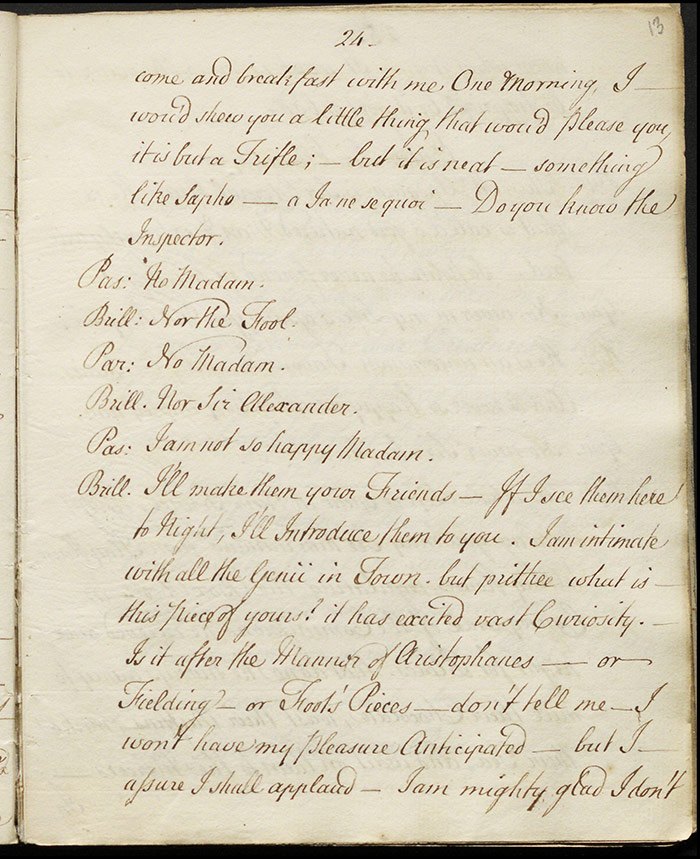 13
24-
come and breakfast with me One Morning, I —
wou'd shew you a little thing that wou'd please you,
it is but a Trifle; — but it is neat — something
like Sapho — a Ja ne se quoi — Do you know the
Inspector.
Pas: No Madam.
Brill: Nor the Fool.
Par: No Madam.
Brill. Nor Sir Alexander.
Pas: I am not so happy Madam.
Brill. I'll make them your Friends — If I see them here
to Night, I'll Introduce them to you. I am intimate
with all the Genii in Town. but prithee what is —
this piece of yours? it has excited vast Curiosity. —
Is it after the Manner of Aristophanes — or —
Fielding? — or Foot's Pieces — don't tell me — I
won't have my pleasure Anticipated — but I —
assure I shall applaud — I am mighty glad I don't